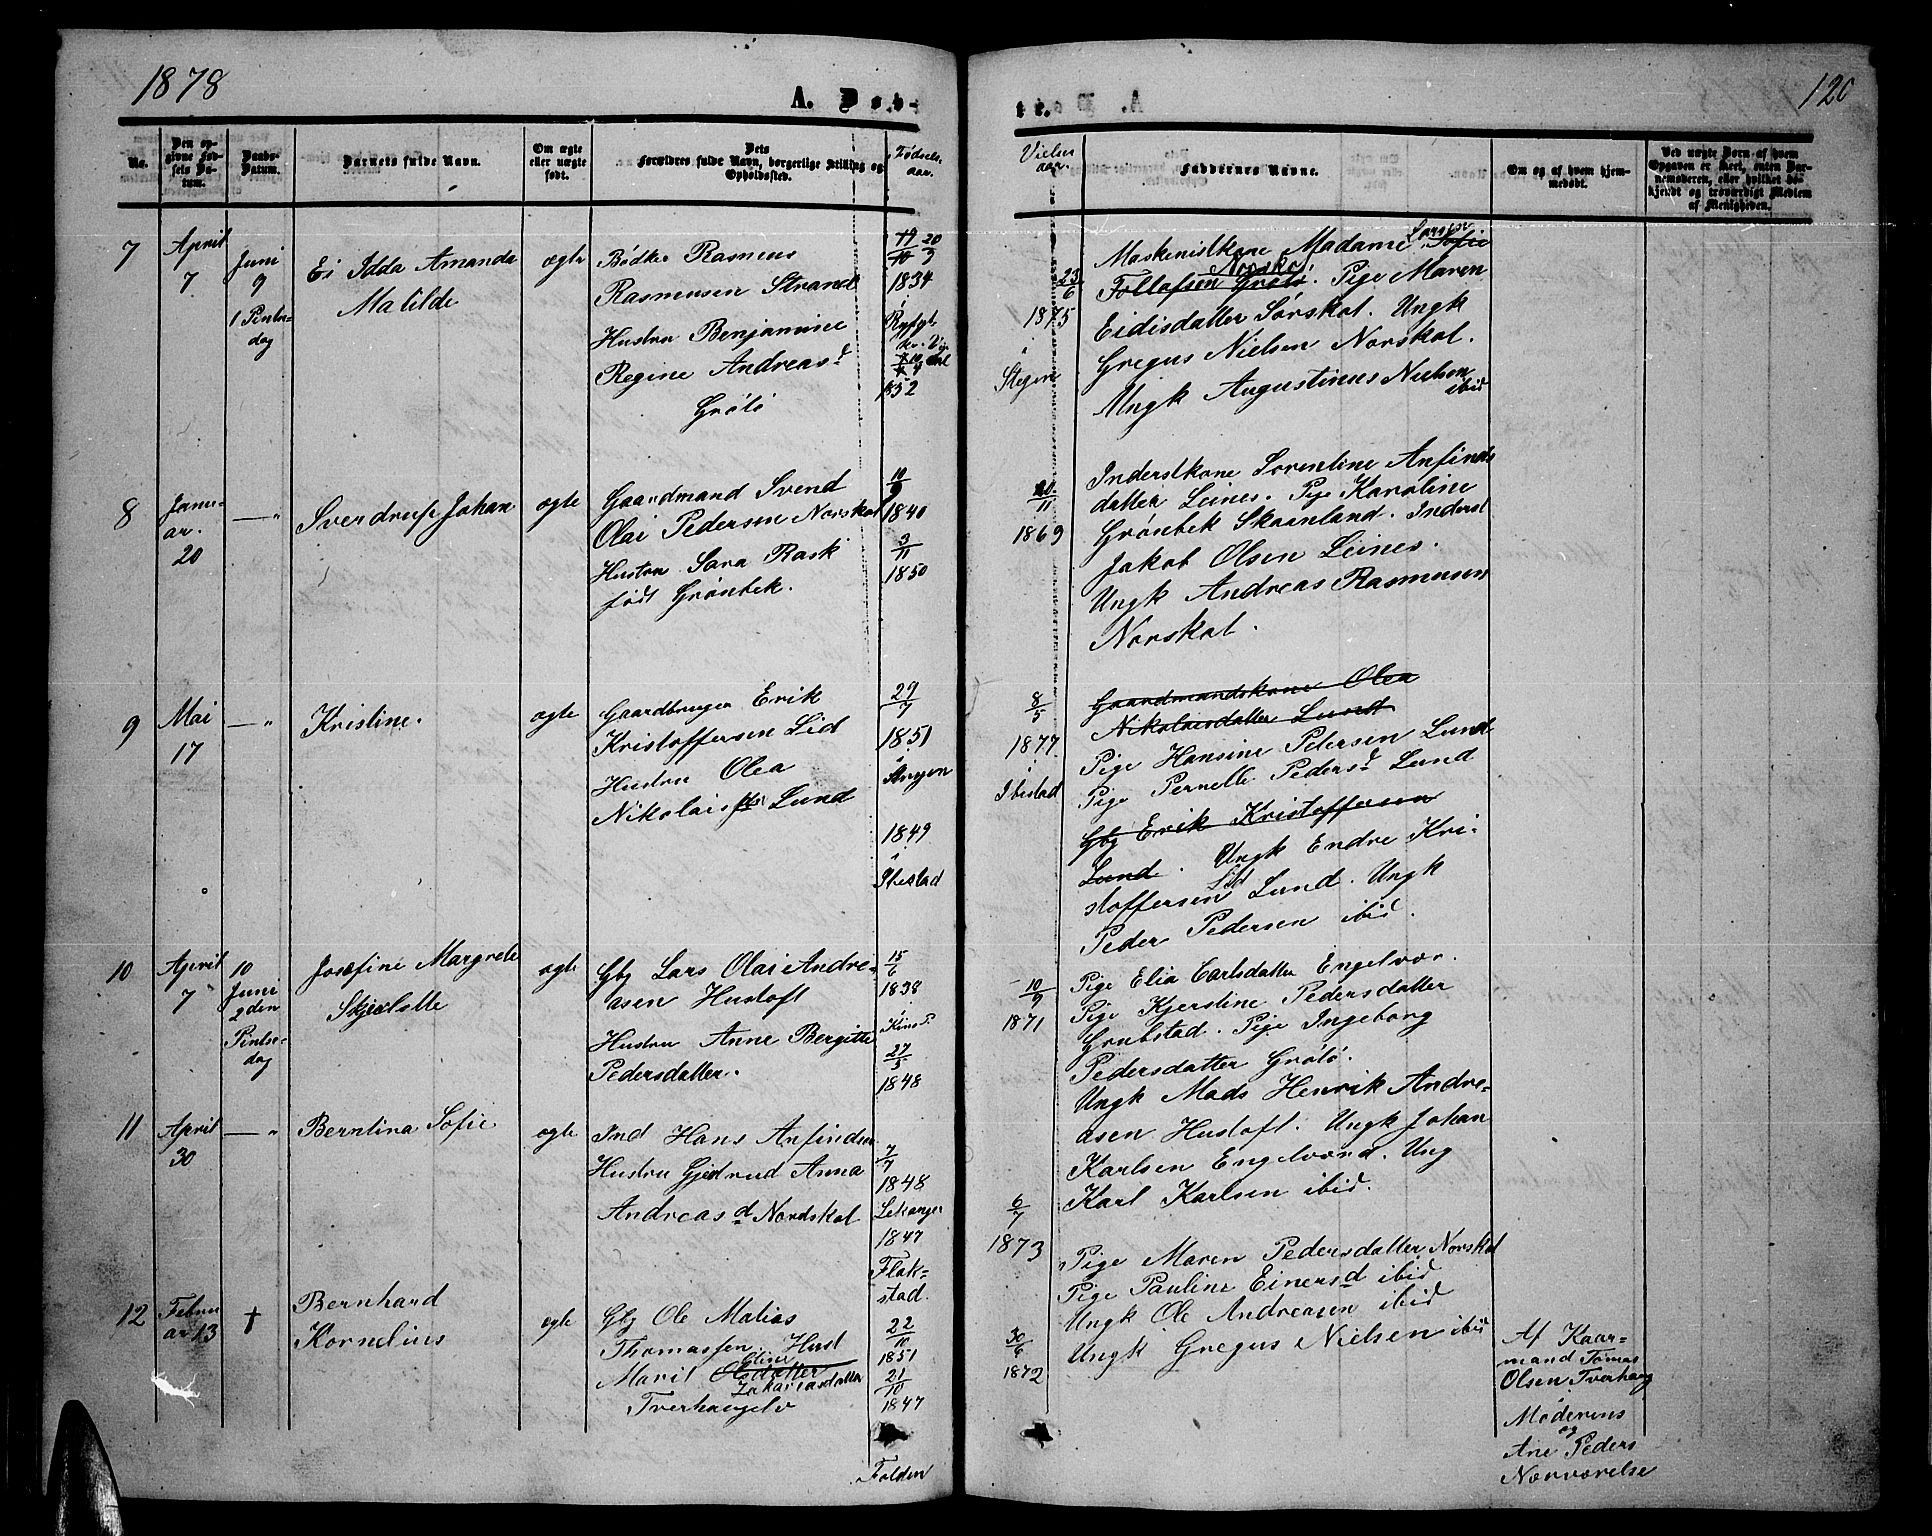 1878
A. Døb-
te.
120
No.
Den op-
givne Fød-
sels Da-
tum.
Daabs-
Datum.
Barnets fulde Navn.
Om ægte
eller uægte
født.
Dets
Forældres fulde Navn, borgerlige Stilling og
Opholdssted.
Fødsels
aar.
Vielses
aar.
Faddernes Navne.
Om og af hvem hjem-
medøbt.
Ved uægte Børn af hvem
Opgaven er skeet, enten Bar-
nemoderen, eller hvilket be-
kjendt og troværdigt Medlem
af Menigheden.
7
April
7
Juni
9
1 Pintse-
dag
Ei Idda Amanda
Matilde
ægte
Bødker Rasmus
Rasmusen Strand
Hustru Benjamine
Regine Andreasd
Grøtø
20
9
1834
1852
23
6
1875
i
Stegen
Maskenistkone Madame Larsine Sofie
Tollafsen Grøtø Norskot. Pige Maren
Eidisdatter Sørskot. Ungk
Gregus Nielsen Norskot.
Ungk Augustinus Nielsen
ibid
8
Janu-
ar.
20
— "
Sverdrup Johan
ægte
Gaardmand Svend
Olai Pedersen Norskot
Hustru Sara Rask
født Grønbek.
10
9
1840
3
11
1850
20
11
1869
Inderstkone Sorentine Anfinds
datter Leines. Pige Karoline
Grønbek Skaanland. Inderst
Jakob Olsen Leines.
Ungk Andreas Rasmusen
Norskot.
9
Mai
17
— "
Kristine.
ægte
Gaardbruger Erik
Kristoffersen Lid
Hustru Olea
Nikolais Lund
29
7
1851
i
1849
i
Ibestad
8
5
1877
i
Ibestad
Gaardmandskone Olea
Nikolaisdatter Lund
Pige Hansine Petersen Lund
Pige Pernelle Pedersd Lund
Gbg Erik Kristoffersen
Lund. Ungk Endre Kri-
stoffersen Lid Lund. Ungk
Peder Pedersen ibid.
10
April
7
10
Juni
2den
Pintse-
dag
Josefine Margrete
Skjelstle
ægte
Gbg Lars Olai Andre-
asen Hustoft
Hustru Anne Bergitte
Pedersdatter.
15
6
1838
27
5
1848
10
9
1871
Pige Elia Carlsdatter Engelvær.
Pige Kjerstine Pedersdatter
Grubstad. Pige Ingeborg
Pedersdatter Grøtø.
Ungk Mads Henrik Andre-
asen Hustoft. Ungk Johan
Karlsen Engelvær. Ung
Karl Karlsen ibid.
11
April
30
— "
Berntina Sofie
ægte
Ind Hans Anfindsen
Hustru Gjertrud Anna
Andreas d Nordskot
7
7
1848
Lekanger
1847
Flak-
stad.
6
7
1873
Pige Maren Pedersdatter Norskot
Pige Pauline Einersd ibid
Ungk Ole Andreasen ibid
Ungk Gregus Nielsen ibid
12
Febru
ar 13
†
Bernhard
Kornelius
ægte
Gbg Ole Matias
Thomassen Hust
Marit Eline Olsdatter
Zakariasdatter
Tverhaugelv
22
10
1851
21
10
1847
Folden
30
6
1872
Af Kaar-
mand Tomas
Olsen Tverhaug
i
Moderens
og
Ane Peders
Nærværelse